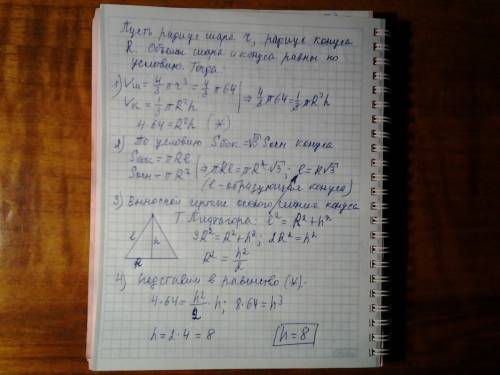 Пусть радиус шара r, радиус конуса
R. Объемы шара и конуса равны по
условию. Тогда
1) Vш = 4/3 πr³ = 4/3 π64 | ⇒ 4/3 π64 = 1/3 πR²h
Vк = 1/3 πR²h
4·64 = R²h (*)
2) По условию Sбок = √3 Sосн конуса
Sбок = πRl | ⇒ πRl = πR²·√3; l = R√3
Sосн = πR² (l - образующая конуса)
3) Выносной чертеж осевого сечения конуса
Т. Пифагора: l² = R² + h²
l h 3R² = R² + h²; 2R² = h²
R R² = h²/2
4) Подставим в равенство (*).
4·64 = h²/2 · h; 8·64 = h³
h = 2·4 = 8 h = 8